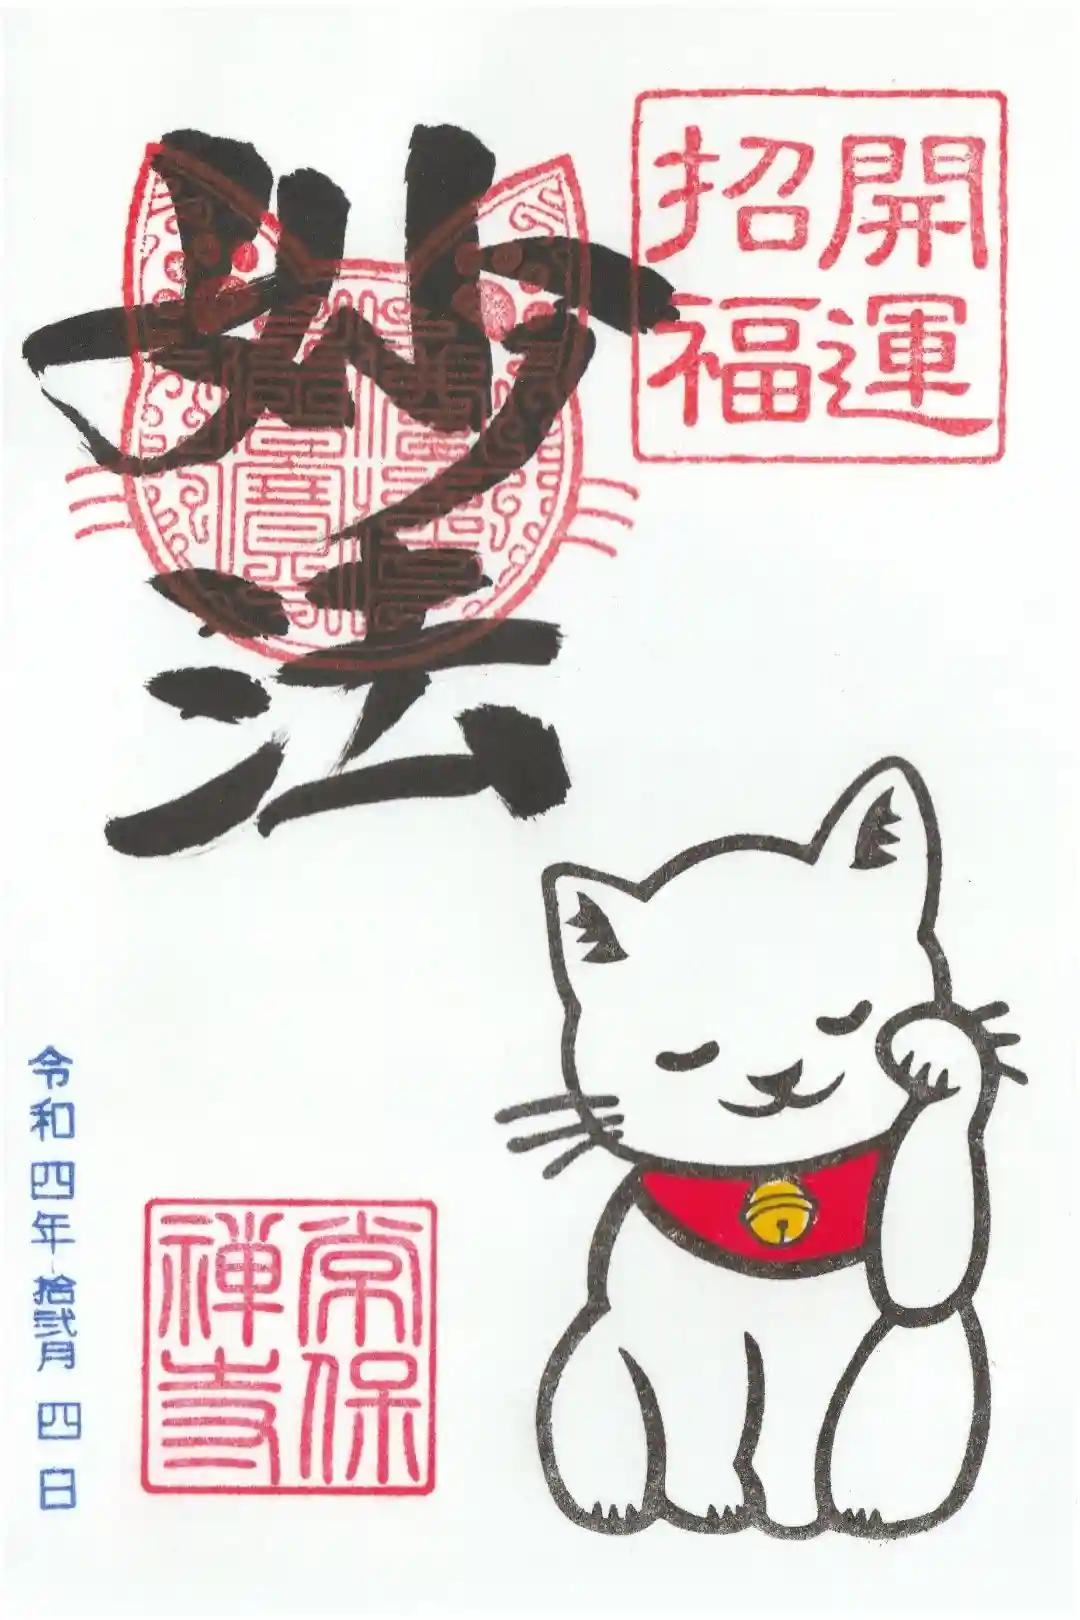 開運
招福
妙法
常保
禅寺
令和四年拾弐月四日